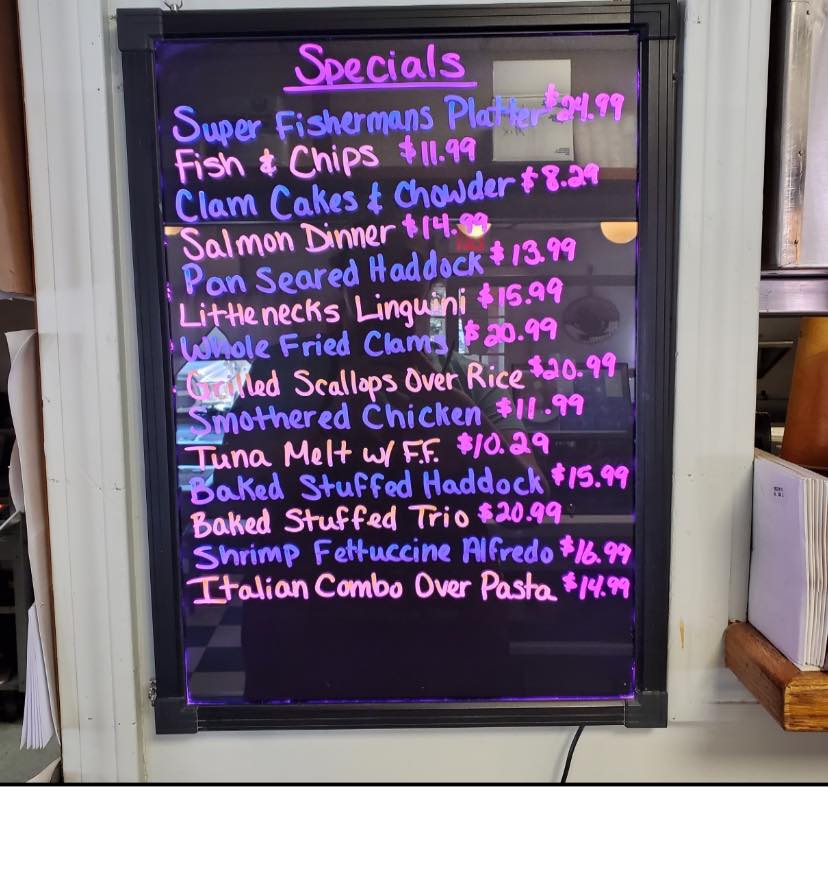 Specials
Super Fishermans Platter $24.99
Fish & Chips $11.99
Clam Cakes & Chowder $8.29
Salmon Dinner $14.99
Pan Seared Haddock $13.99
Littlenecks Linguini $15.99
Whole Fried Clams $20.99
Grilled Scallops Over Rice $20.99
Smothered Chicken $11.99
Tuna Melt w/ F.F. $10.29
Baked Stuffed Haddock $15.99
Baked Stuffed Trio $20.99
Shrimp Fettuccine Alfredo $16.99
Italian Combo Over Pasta $14.99